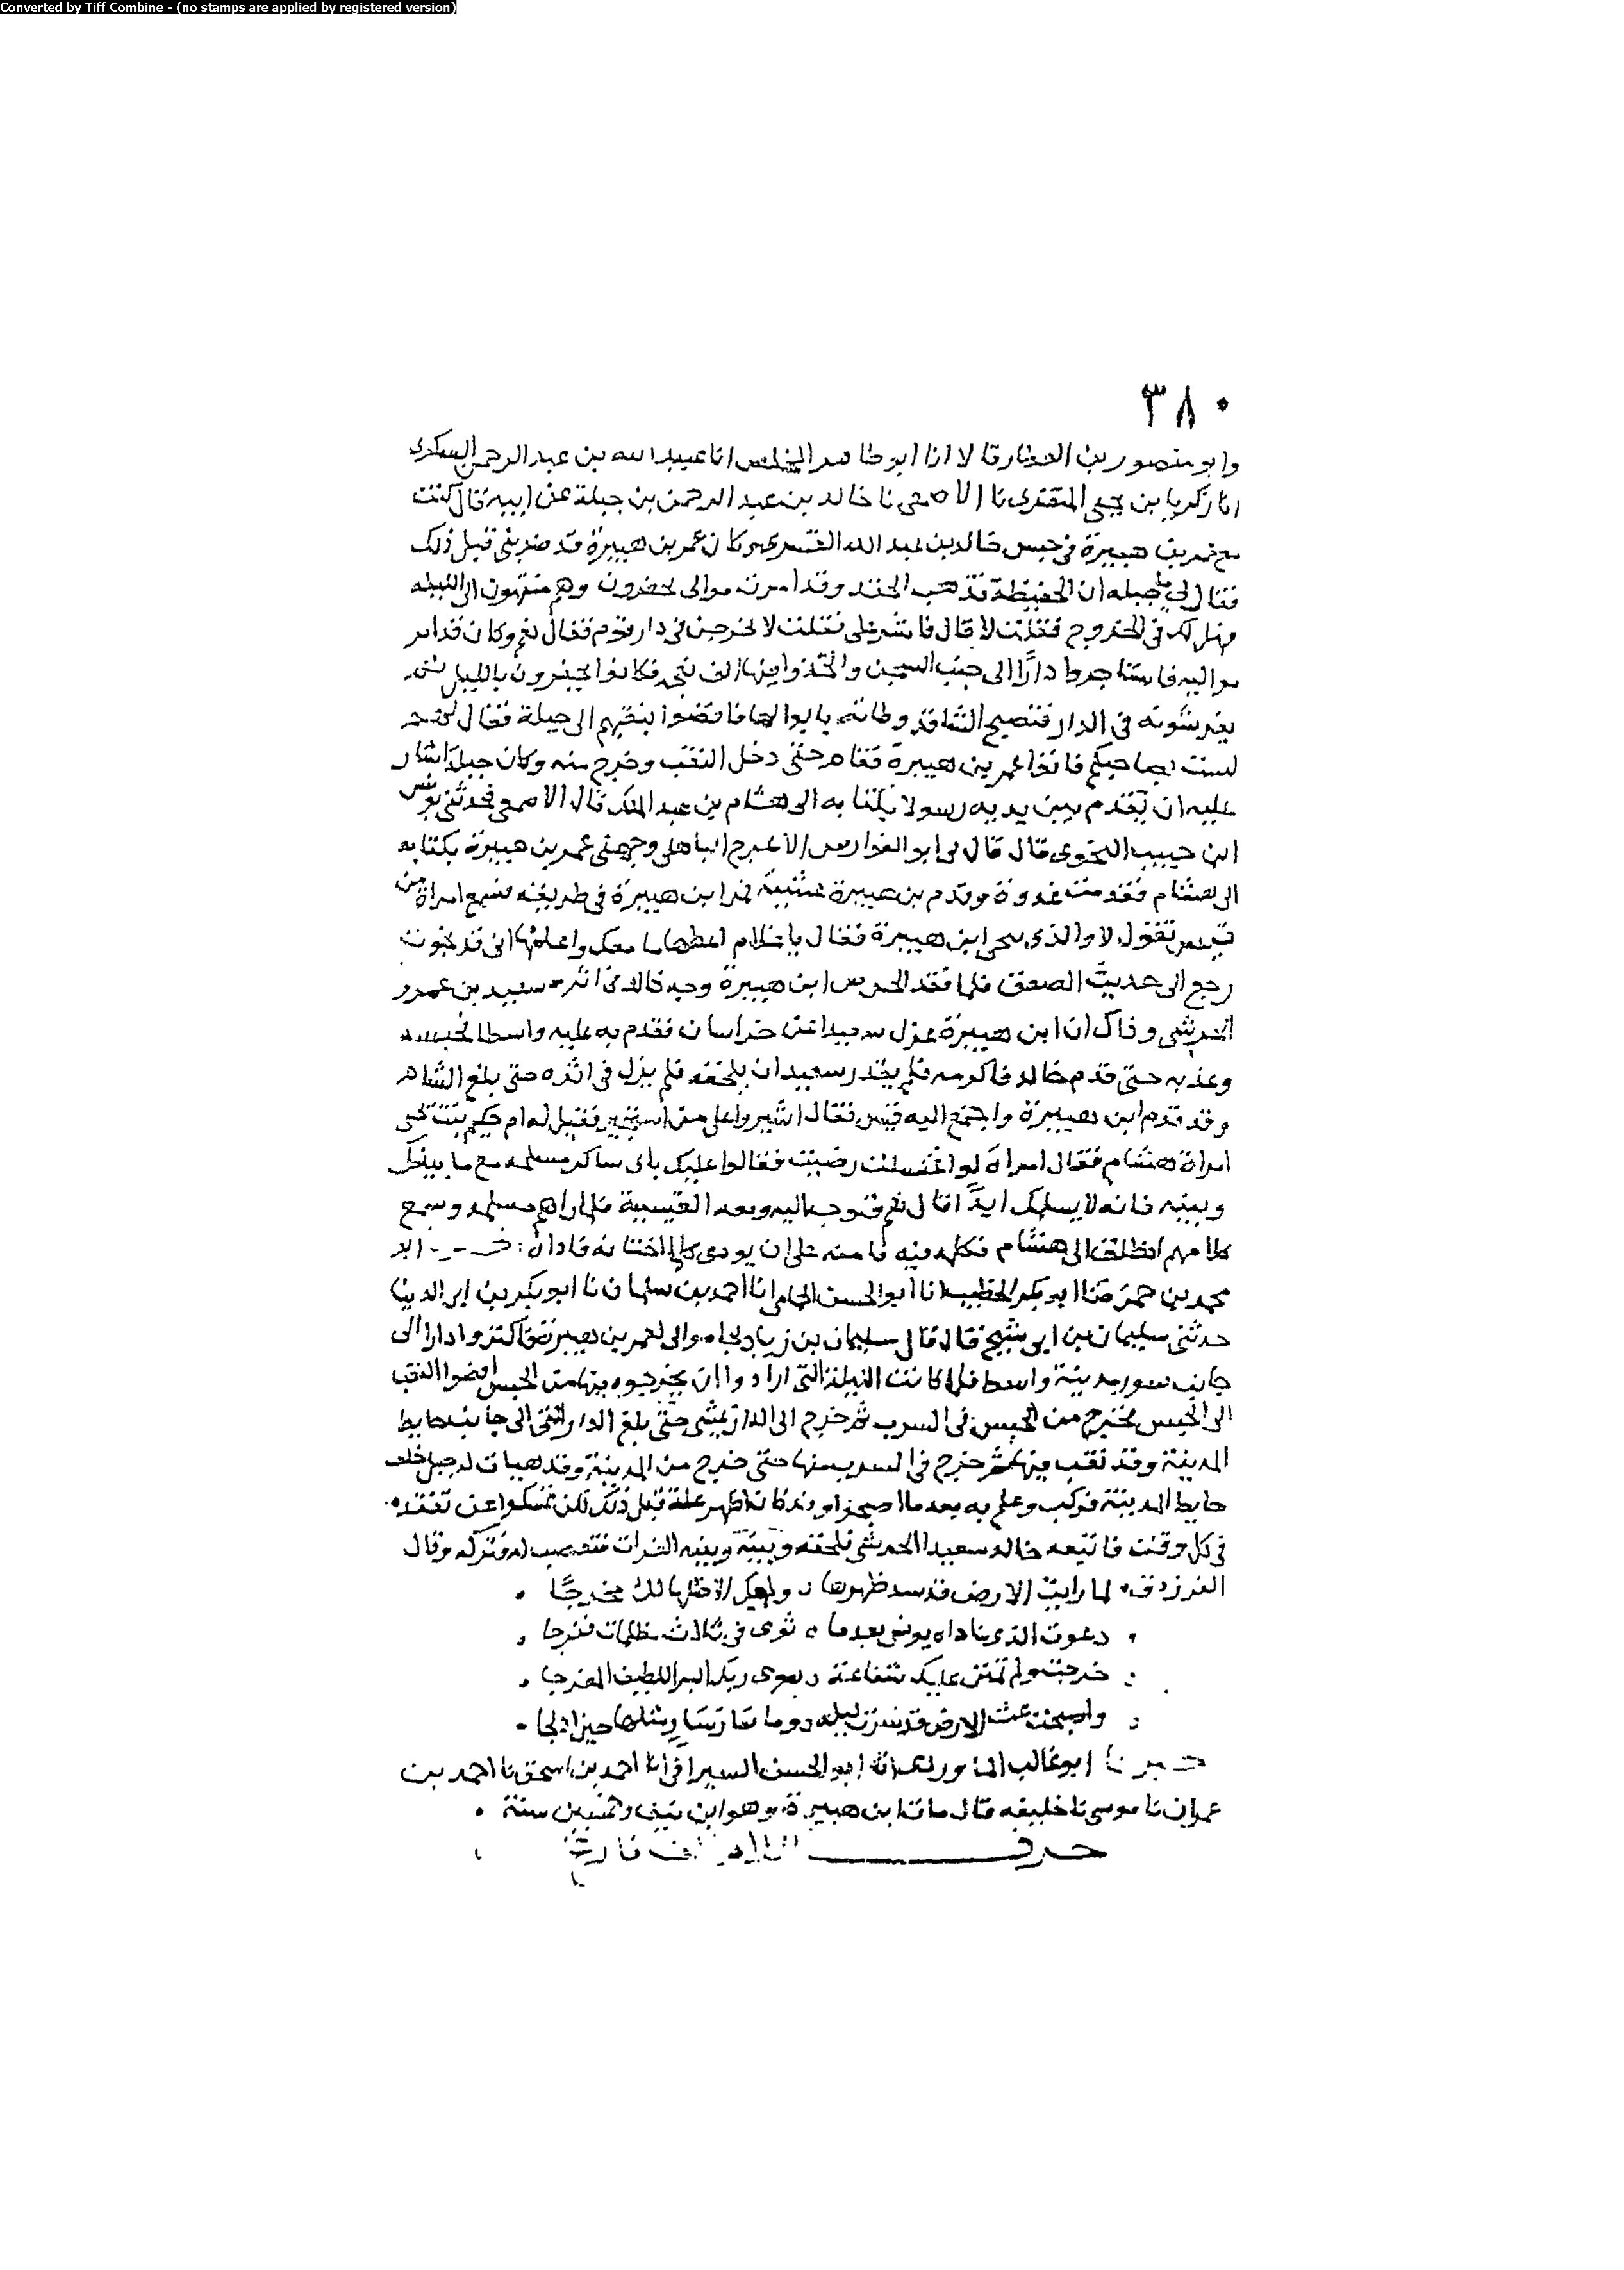 Converted by Tiff Combine - (no stamps are applied by registered version)
٣٨٠
وابو منصور بن العطار قالا انا ابو طاهر المخلص انا عبيد الله بن عبد الرحمن السكرى
انا زكريا بن يحيى المنقرى نا الاصمعى نا خالد بن عبد الرحمن بن جبلة عن ابيه قال كنت
مع عمر بن هبيرة فى حبس خالد بن عبد الله القسرى وكان عمر بن هبيرة قد ضربنى قبل ذلك
فقال لى يا جبله ان الحفيظة تذهب الحقد وقد امرت موالى يحفرون وهم منتهون الى الليله
فهل لك فى الخروج فقلت لا قال فاشر على فقلت لا تخرجن فى دار قوم فقال نعم وكان قد امر
مواليه فاستاجروا دارًا الى جنب السجن واتخذوا فيها الف نعجه فكانوا يحفرون بالليل ثم
يفرشونه فى الدار فتصبح الشا قد وطئته بابوالها فافضوا بنقبهم الى جبلة فقال
لست بصاحبكم فاتوا عمر بن هبيرة فقام حتى دخل النقب وخرج منه وكان جبلة اشار
عليه ان يقدم بين يديه رسولا بكتابه الى هشام بن عبد الملك قال الاصمعى فحدثنى يونس
ابن حبيب النحوى قال قال لى ابو الفوارس الاعرج الباهلى وجهنى عمر بن هبيرة بكتابه
الى هشام فقدمت غدوة وقدم بن هبيرة عشية فمر ابن هبيرة فى طريقه فسمع امراة من
قيس تقول لا والذى ينجى ابن هبيرة فقال يا غلام اعطها ما معك واعلمها انى قد نجوت
رجع الى حديث الصعق فلما فقد الحرس ابن هبيرة وجه خالد فى اثره سعيد بن عمرو
الحرشى وذاك ان ابن هبيرة عزل سعيدا عن خراسان فقدم به عليه واسطا فحبسه
وعذبه حتى قدم خالد فاكرمه فلم يقدر سعيد ان يلحقه فلم يزل فى اثره حتى بلغ الشام
وقد قدم ابن هبيرة واجتمع اليه قيس فقال اشيروا على من استجير فقيل له ام حكيم بنت يحيى
امراة هشام فقال امراة لو اغتسلت رضيت فقالوا عليك بابى شاكر مسلمه مع ما بينك
وبينه فانه لا يسلمك ابدًا قال نعم فتوجه اليه ومعه القيسية فلما راهم مسلمه وسمع
كلامهم انطلق الى هشام فكلمه فيه فامنه على ان يودى كلما اختانه فاداه
محمد بن حمزة نا ابو بكر الخطيب انا ابو الحسن الحمامى انا احمد بن سلمان نا ابو بكر بن ابى الدنيا
حدثنى سليمان بن ابى شيخ قال قال سليمان بن زياد لجا موالى لعمر بن هبيرة فاكتروا دارا الى
جانب سور مدينة واسط فلما كانت الليلة التى ارادوا ان يخرجوه فيها من الحبس افضوا النقب
الى الحبس فخرج من الحبس فى السرب ثم خرج الى الدار يمشى حتى بلغ الدار التى الى جانب حايط
المدينة وقد نقب فيها ثم خرج فى السرب منها حتى خرج من المدينة وقد هييت له خيل خلف
حايط المدينة فركب وعلم به بعد ما اصبحوا وقد كان اظهر علة قبل ذلك لكى يمسكوا عن تفقده
فى كل وقت فاتبعه خالد سعيدا الحرشى فلحقه وبينه وبينه الفرات فتعصب له وتركه وقال
الفرزدق لما رايت الارض قد سد ظهرها ولم يك الا ظهرها لك مخرجًا
دعوت الذى ناداه يونس بعدما ثوى فى ثلاث مظلمات ففرجا
خرجت ولم تمنن عليك شفاعة سوى ربك البر اللطيف المفرجا
واصبحت تحت الارض قد سرت ليله وما سار سار مثلها حين ادلجا
ابو غالب الماوردى انا ابو الحسن السيرافى انا احمد بن اسحق نا احمد بن
عمران نا موسى نا خليفه قال مات ابن هبيرة وهو ابن نيف وخمسين سنة
حرف